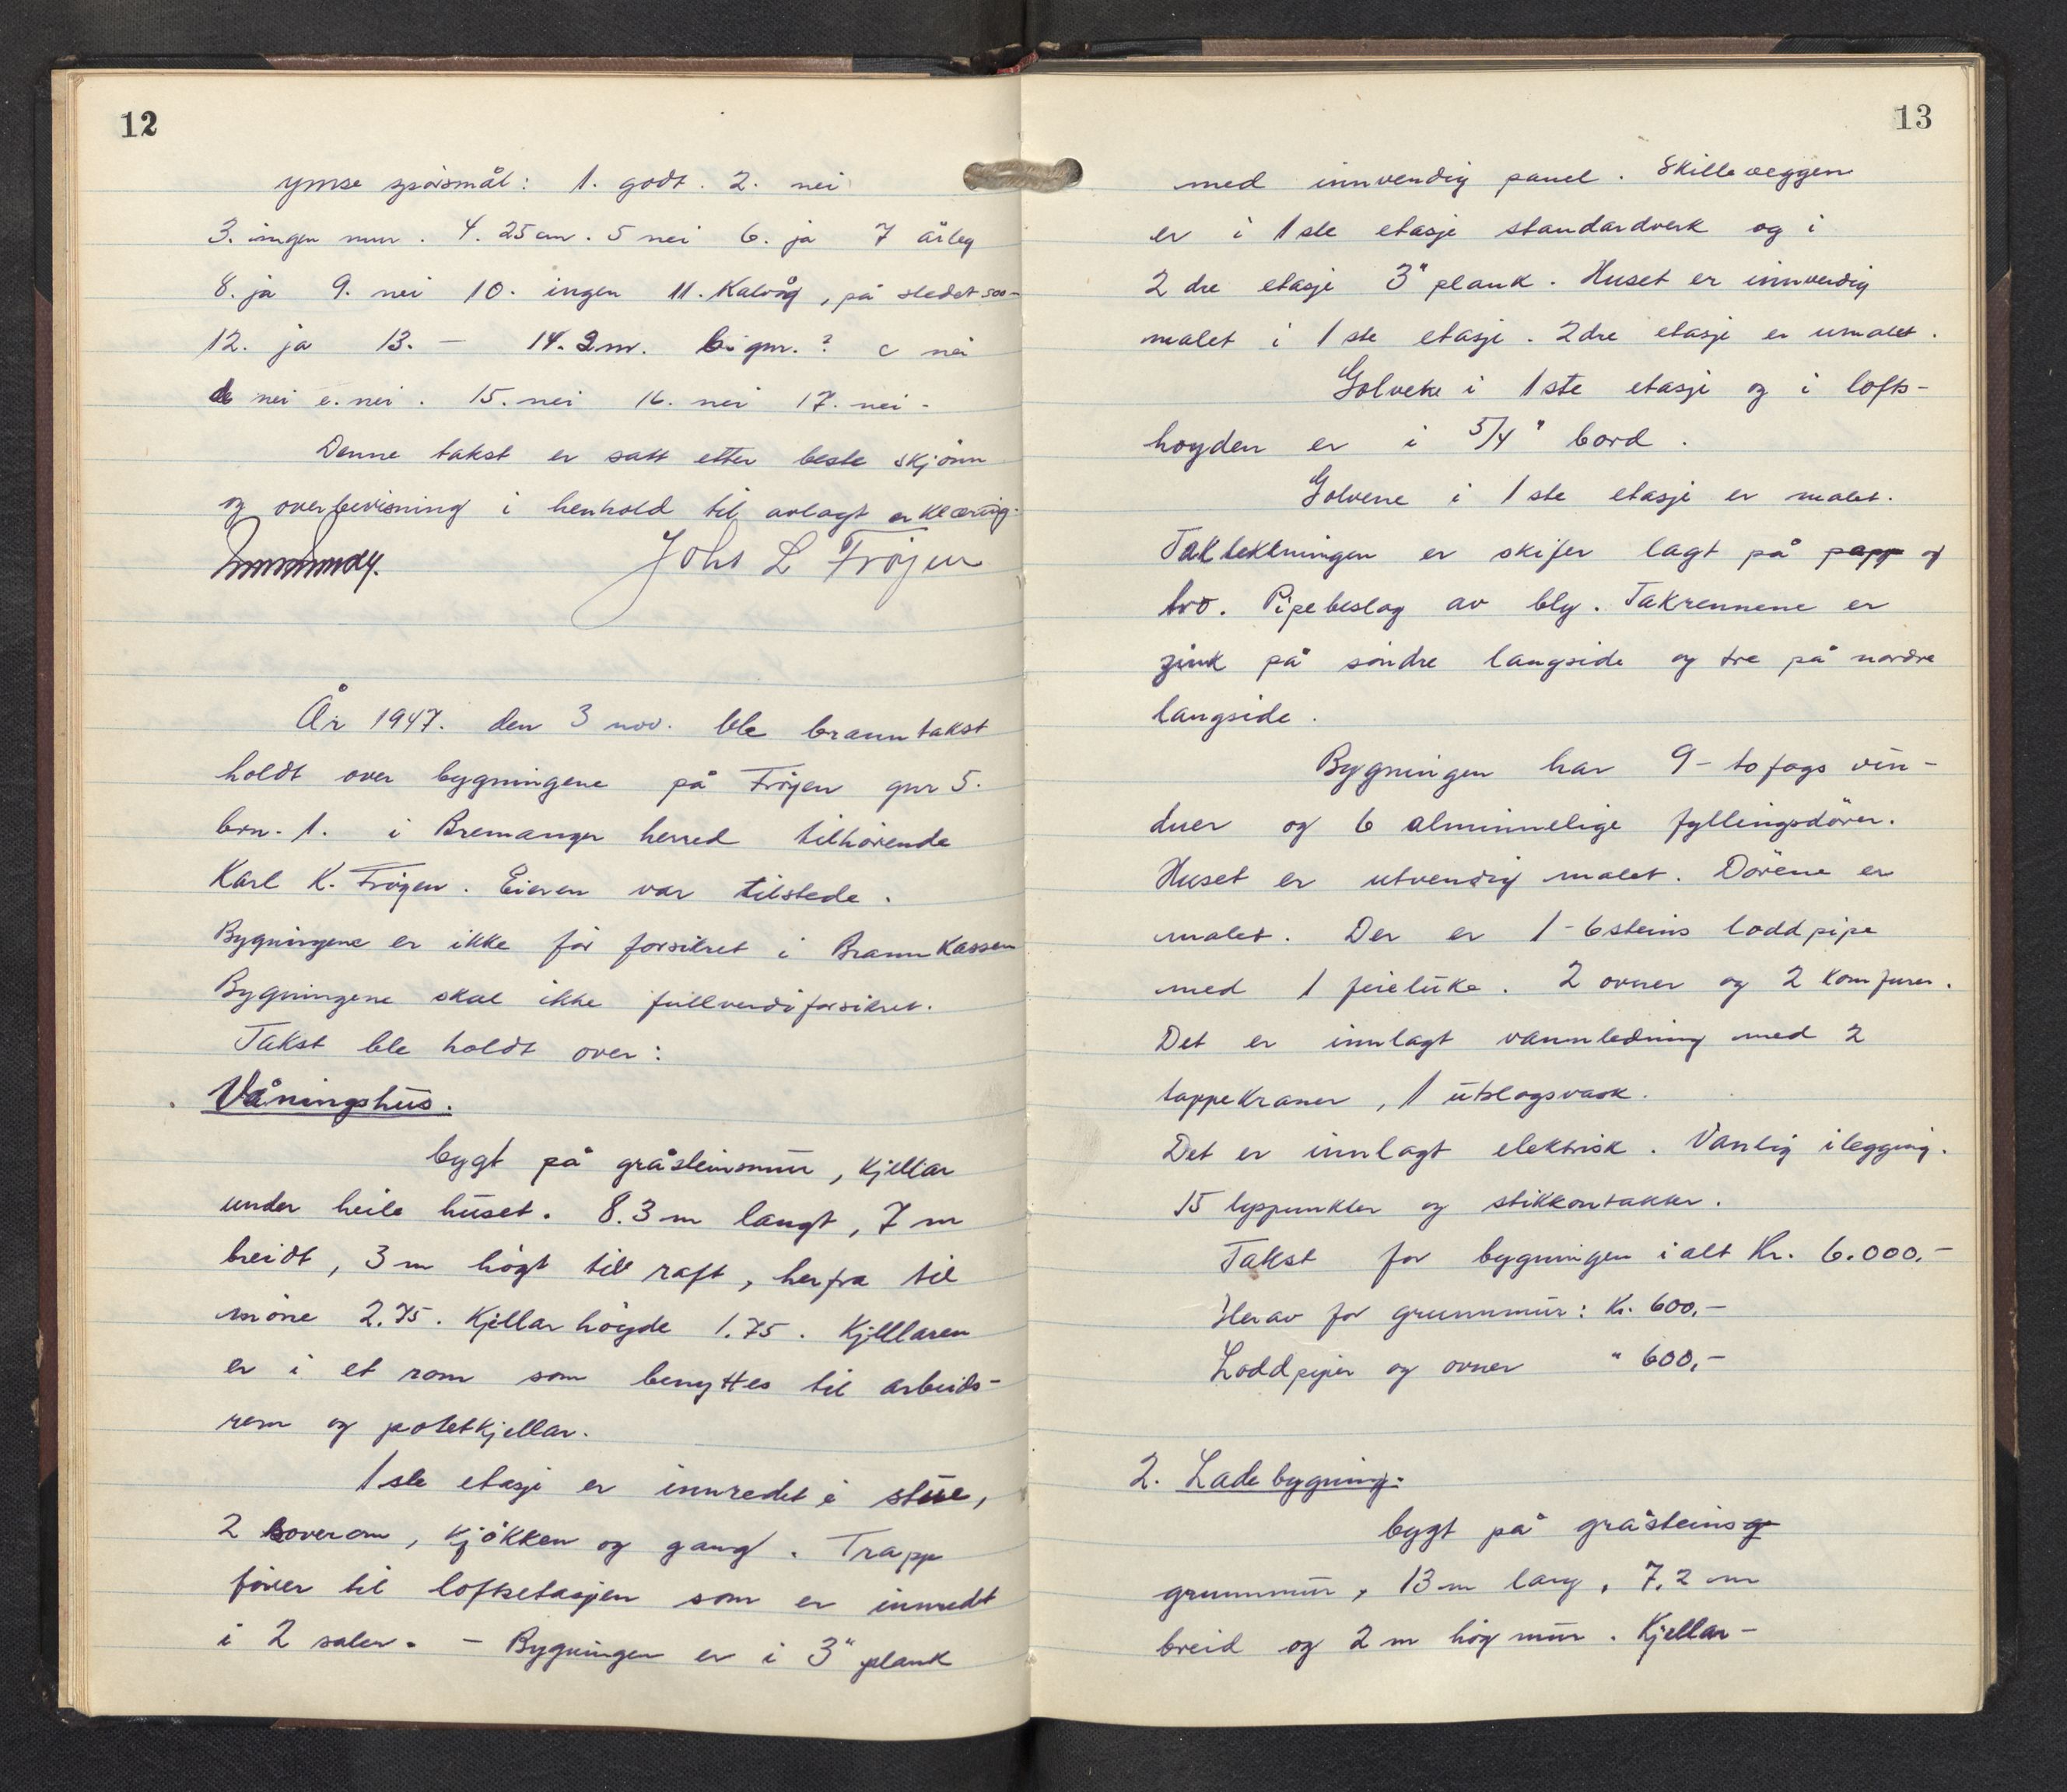 12
ymse spörsmål: 1. godt. 2. nei
3. ingen mur. 4. 25 cm. 5 nei 6. ja 7 årleg
8. ja 9. nei 10. ingen 11. Kalvåg, på stedet 500-
12. ja 13. – 14. 2 m. b. ? c nei
d nei e. nei. 15. nei 16. nei 17. nei.
Denne takst er satt etter beste skjönn
og overbevisning i henhold til avlagt erklæring.
Johs L Fröjen
År 1947. den 3 nov. ble branntakst
holdt over bygningene på Fröyen gnr 5.
brn. 1. i Bremanger herred tilhörende
Karl K. Fröyen. Eieren var tilstede.
Bygningene er ikke för forsikret i Brannkassen
Bygningene skal ikke fullverdiforsikres.
Takst ble holdt over:
Våningshus.
bygt på gråsteinsmur, kjellar
under heile huset. 8.3 m langt, 7 m
breidt, 3 m högt till raft, herfra til
möne 2.75. Kjellarhöyde 1.75. Kjelllaren
er i et rom som benyttes til arbeids-
rom og potetkjellar.
1ste etasje er innredet i stue,
2 soverom, kjökken og gang. Trapp
förer til loftsetasjen som er innredt
i 2 saler. – Bygningen er i 3" plank
13
med innvendig panel. Skilleveggen
er i 1ste etasje standardverk og i
2dre etasje 3" plank. Huset er innvendig
malet i 1ste etasje. 2dre etasje er umalet.
Golvene i 1ste etasje og i lofts-
hoyden er i 5/4" bord.
Golvene i 1ste etasje er malet.
Taktekkningen er skifer lagt på papp og
tro. Pipebeslag av bly. Takrennene er
zink på söndre langside og tre på nordre
langside.
Bygningen har 9 – tofags vin-
duer og 6 alminnelige fyllingsdörer.
Huset er utvendig malet. Dörene er
malet. Der er 1 – 6steins loddpipe
med 1 feieluke. 2 ovner og 2 komfurer.
Det er innlagt vannledning med 2
tappekraner, 1 utslagsvask.
Det er innlagt elektrisk. Vanlig ilegging.
15 lyspunkter og stikkontakter.
Takst for bygningen i alt Kr. 6.000,-
Herav for grunnmur: Kr. 600,-
Loddpiper og ovner " 600,-
2. Ladebygning:
bygt på gråsteinsg
grunnmur, 13 m lang, 7,2 m
breid og 2 m hög mur. Kjellar-